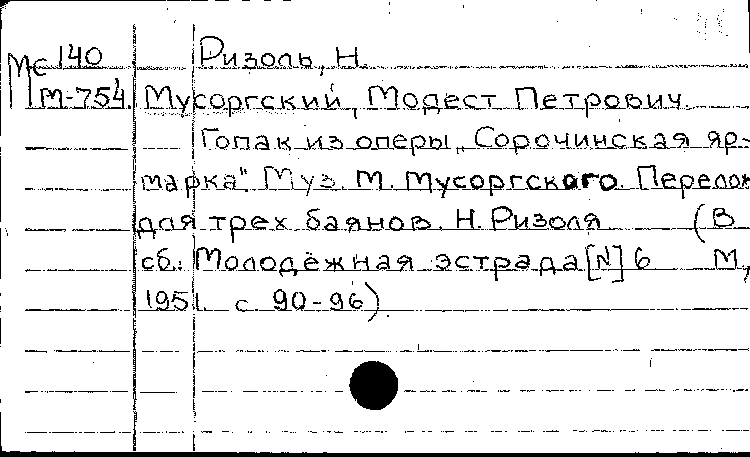 Мс 140 Ризоль, Н.
М-754. Мусоргский, Модест Петрович.
Гопак из оперы „Сорочинская яр-
марка". Муз. М. Мусоргского. Перелож
для трех баянов. Н. Ризоля (В
сб.: Молодёжная эстрада [N] 6 М,
1951. с 90-96).